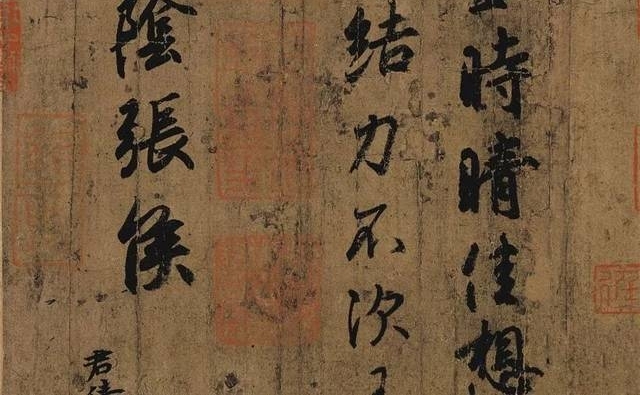 時晴佳想
結力不次
陰張侯
君